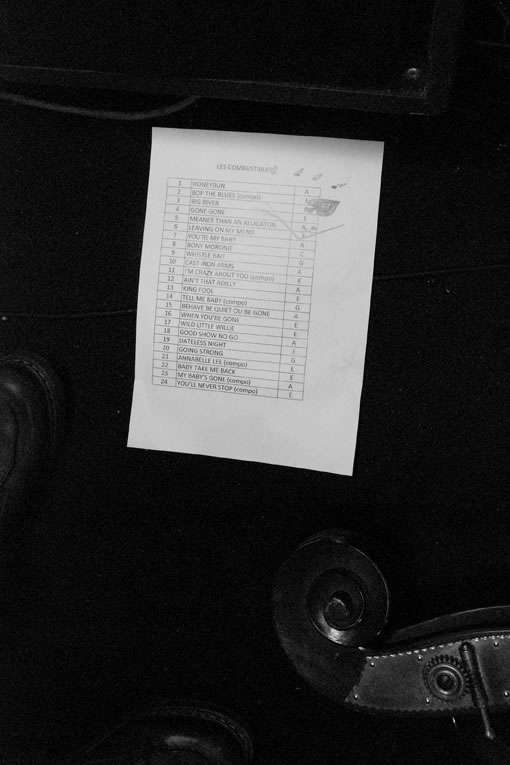 LES COMBUSTIBLES
1 HONEYBUN A
2 BOP THE BLUES (compo)
3 BIG RIVER
4 GONE GONE E
5 MEANER THAN AN ALLIGATOR A
6 LEAVING ON MY MIND
7 YOU'RE MY BABY A
8 BONY MORONIE C
9 WHISTLE BAIT G
10 CAST IRON ARMS A
11 I'M CRAZY ABOUT YOU (compo) E
12 AIN'T THAT A DILLY A
13 KING FOOL E
14 TELL ME BABY (compo) G
15 BEHAVE BE QUIET OU BE GONE A
16 WHEN YOU'RE GONE E
17 WILD LITTLE WILLIE E
18 GOOD SHOW NO GO A
19 DATELESS NIGHT E
20 GOING STRONG G
21 ANNABELLE LEE (compo) E
22 BABY TAKE ME BACK E
23 MY BABY'S GONE (compo) A
24 YOU'LL NEVER STOP (compo) E